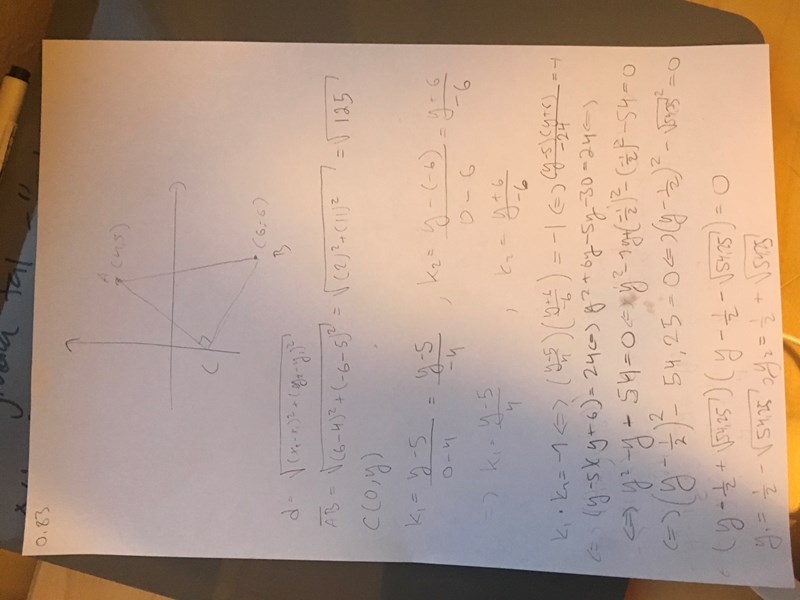 0.83
A (4,5)
C
(6,-6)
B
d = √((x₁-x₂)²+(y₂-y₁)²)
AB = √((6-4)²+(-6-5)²) = √((2)²+(11)²) = √125
C(0,y)
k₁ = (y-5)/(0-4) = (y-5)/-4 , k₂ = (y-(-6))/(0-6) = (y+6)/-6
=> k₁ = (y-5)/4 , k₂ = (y+6)/-6
k₁·k₂ = -1 <=> ((y-5)/4)((y+6)/-6) = -1 <=> (y-5)(y+6)/-24 = -1
<=> (y-5)(y+6) = 24 <=> y²+6y-5y-30 = 24 <=>
<=> y²-y+54=0 <=> y²-1y+(-1/2)²-(1/2)²-54=0
<=> (y-1/2)²-54,25=0 <=> (y-1/2)²-√54,25²=0
(y-1/2+√54,25)(y-1/2-√54,25)=0
y₁ = 1/2 - √54,25 , y₂ = 1/2 + √54,25